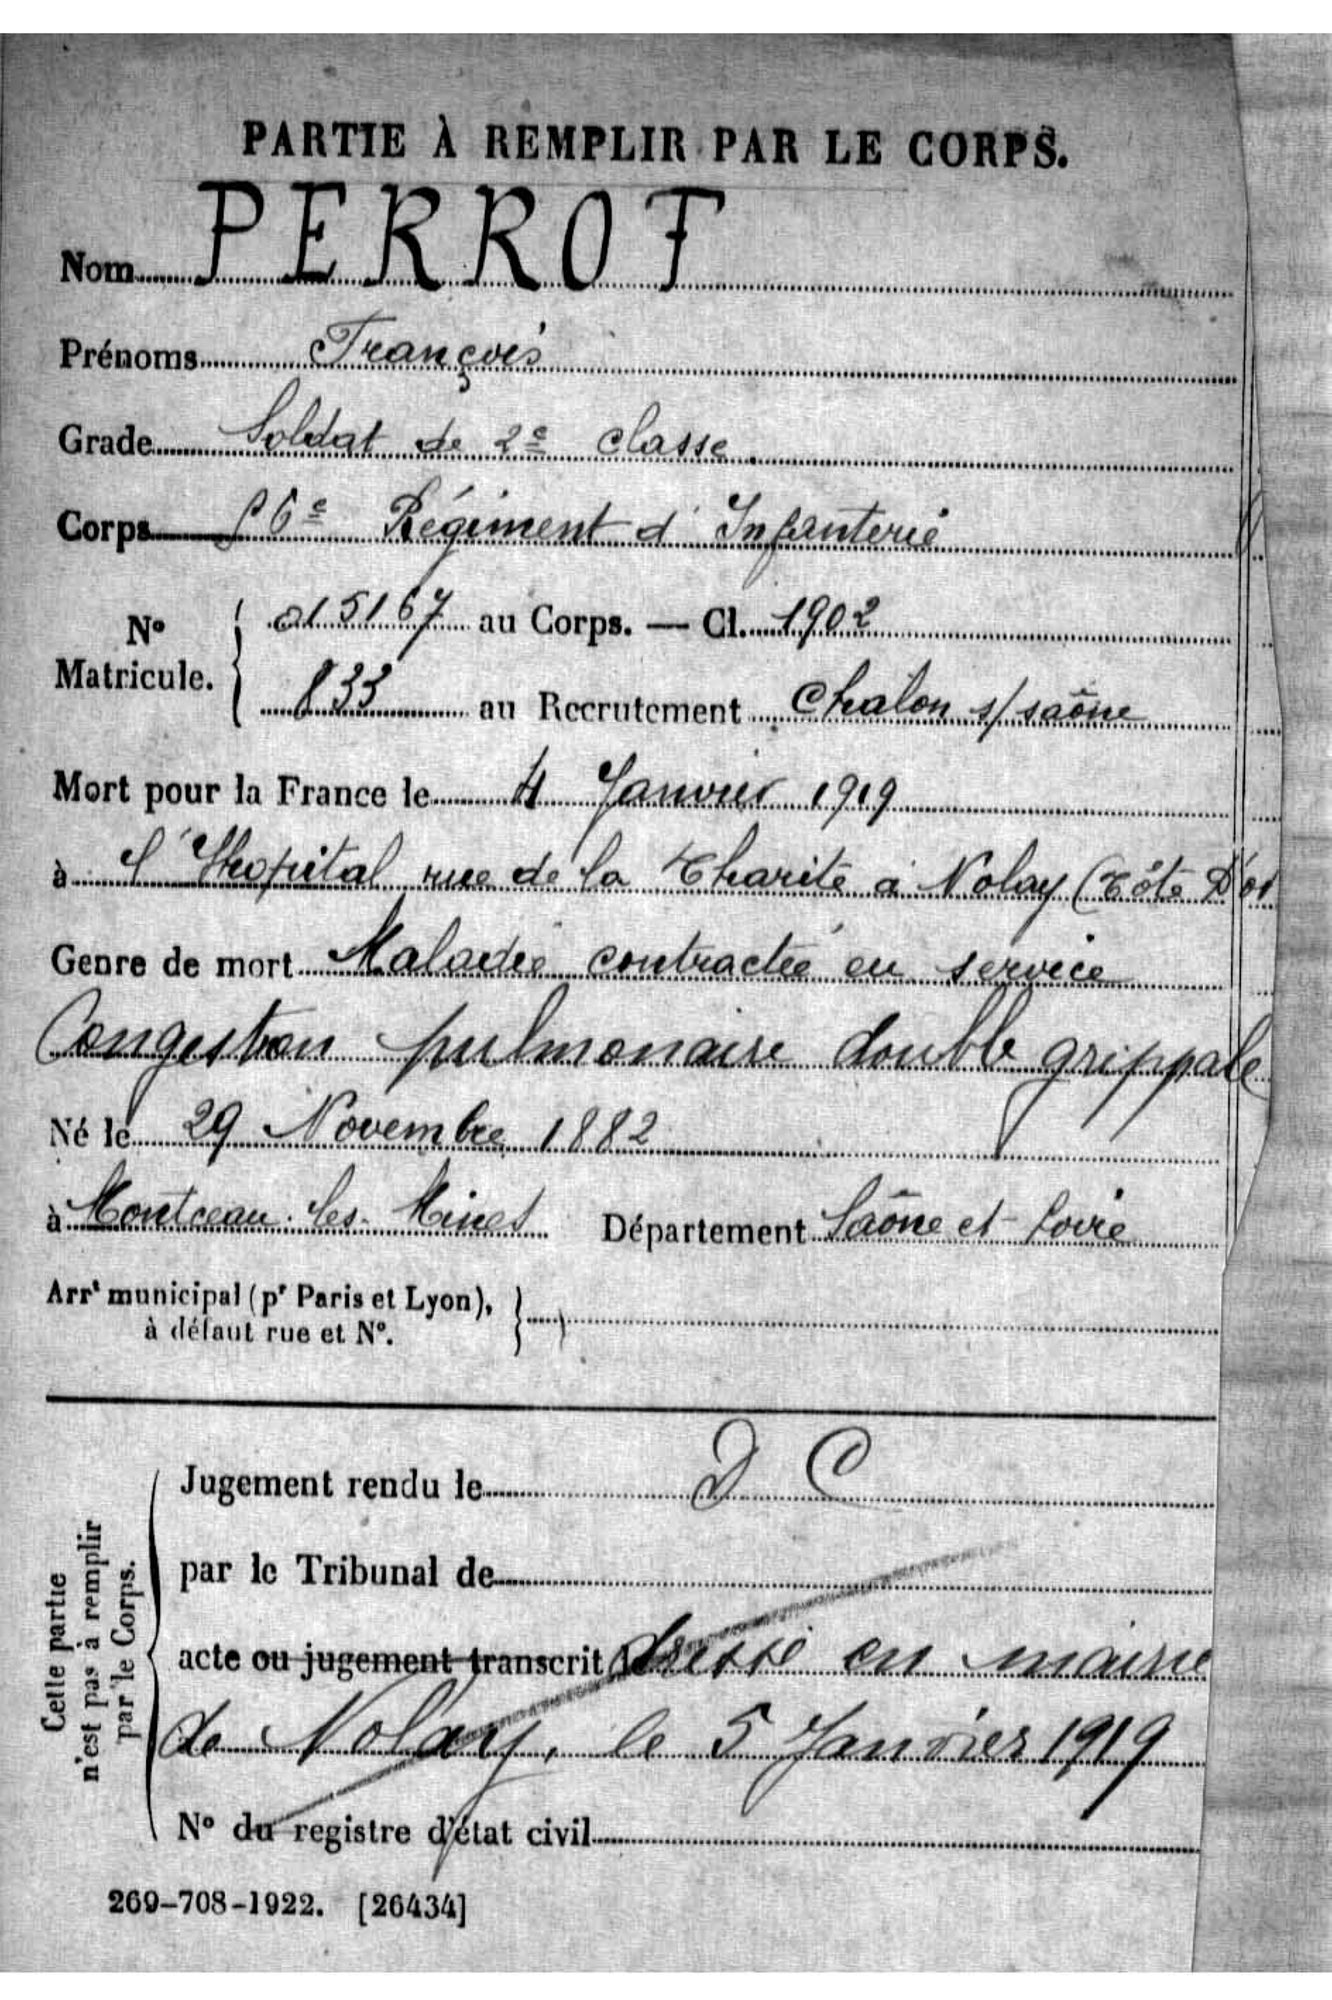 PARTIE À REMPLIR PAR LE CORPS.
Nom PERROT
Prénoms François
Grade Soldat de 2e classe
Corps 56e Régiment d'Infanterie
No Matricule. { 015167 au Corps. — Cl. 1902
833 au Recrutement Chalon s/saône
Mort pour la France le 4 Janvier 1919
à l'Hopital rue de la Charité à Nolay (Côte D'or
Genre de mort Maladie contractée en service
Congestion pulmonaire double grippale
Né le 29 Novembre 1882
à Montceau-les-Mines Département Saône et Loire
Arrt municipal (pr Paris et Lyon),
à défaut rue et No.
D C
Jugement rendu le
par le Tribunal de
acte ou jugement transcrit dressé en mairie
de Nolay, le 5 Janvier 1919
No du registre d'état civil
Cette partie
n'est pas à remplir
par le Corps.
269-708-1922. [26434]